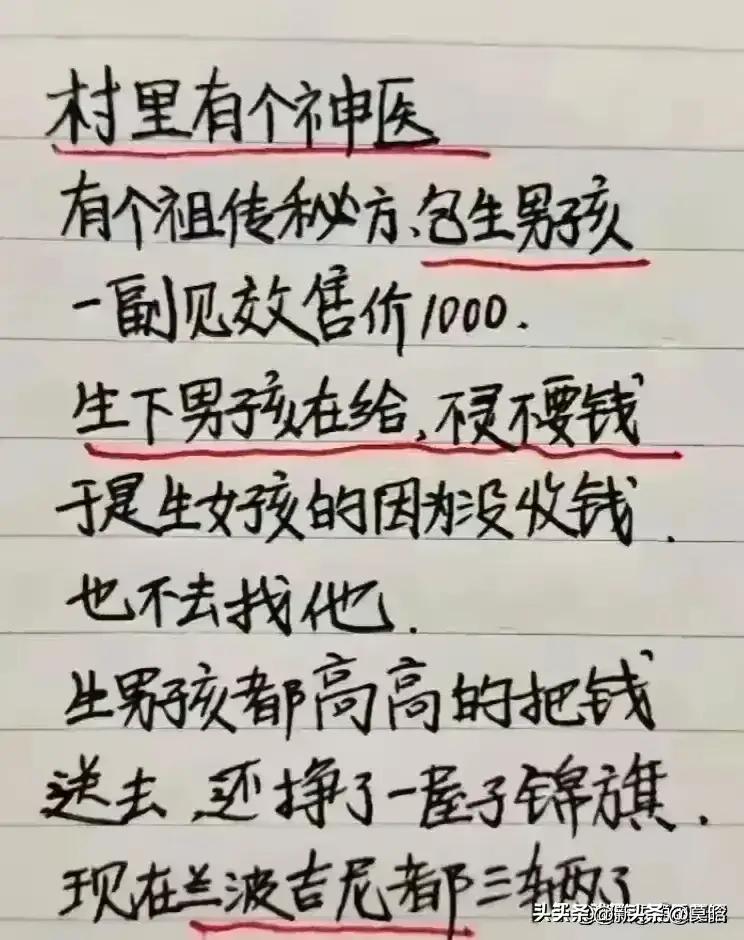 村里有个神医
有个祖传秘方、包生男孩
一副见效售价1000.
生下男孩在给,不灵不要钱
于是生女孩的因为没收钱.
也不去找他.
生男孩都高高的把钱
送去,还挣了一屋子锦旗.
现在兰波吉尼都三辆了